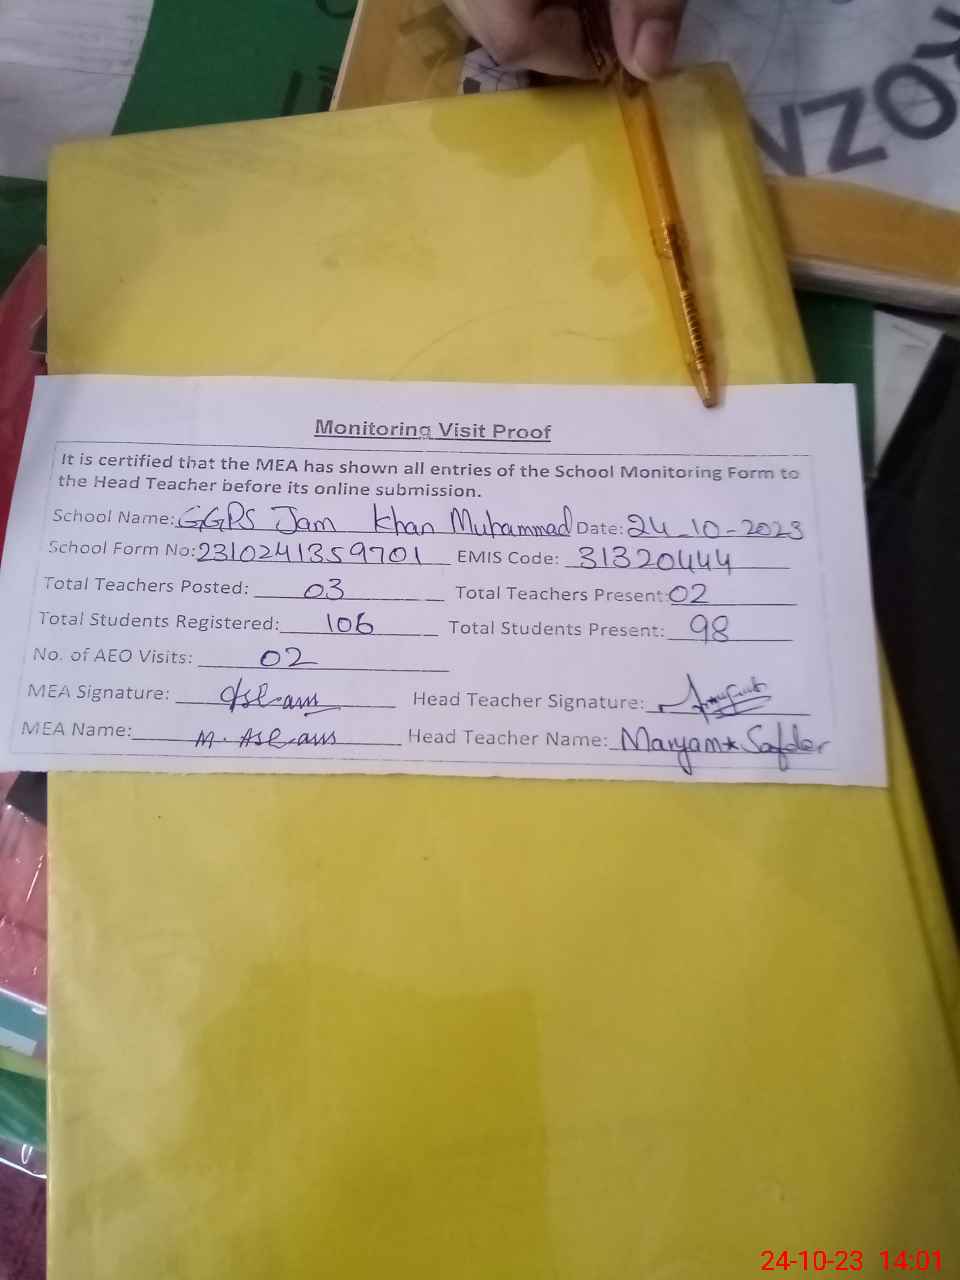 ROZA
Monitoring Visit Proof
It is certified that the MEA has shown all entries of the School Monitoring Form to
the Head Teacher before its online submission.
School Name: GGPS Jam Khan Muhammad Date: 24-10-2023
School Form No: 2310241359701 EMIS Code: 31320444
Total Teachers Posted: 03 Total Teachers Present: 02
Total Students Registered: 106 Total Students Present: 98
No. of AEO Visits: 02
MEA Signature: Head Teacher Signature:
MEA Name: M. Aslam Head Teacher Name: Maryam Safder
24-10-23 14:01